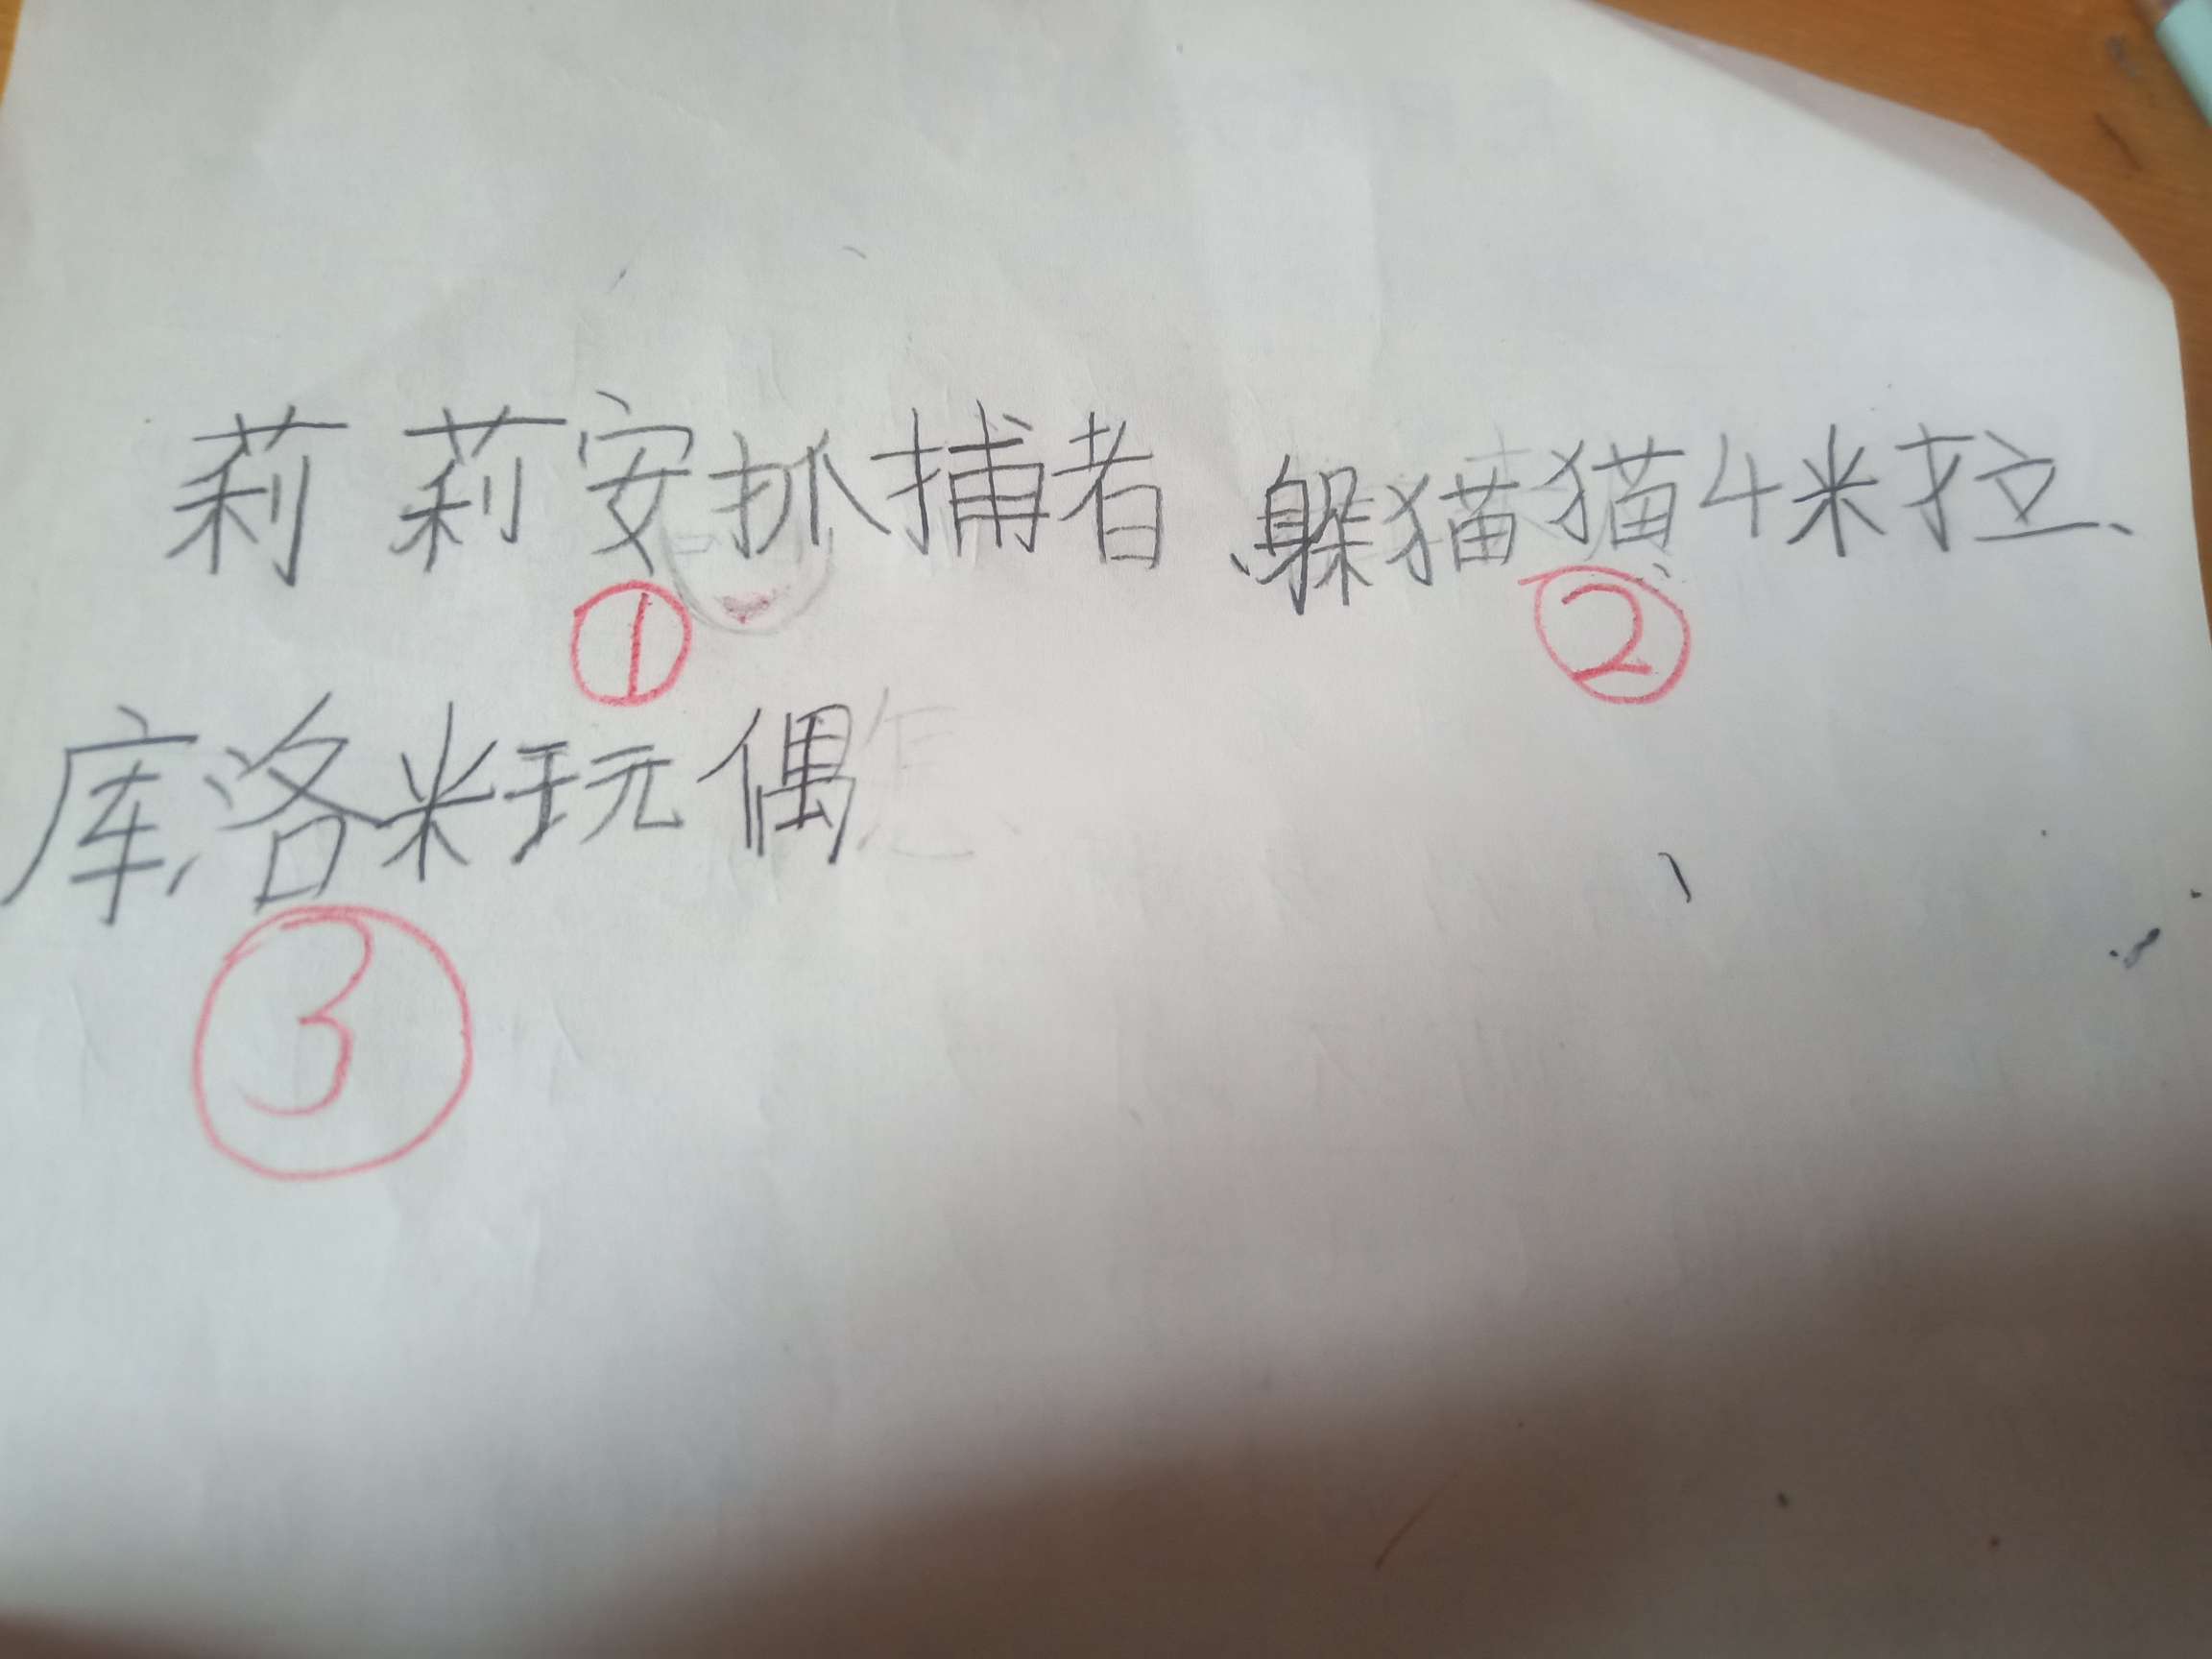 莉莉安抓捕者、躲猫猫4米拉、
① ②
库、洛米玩偶
③